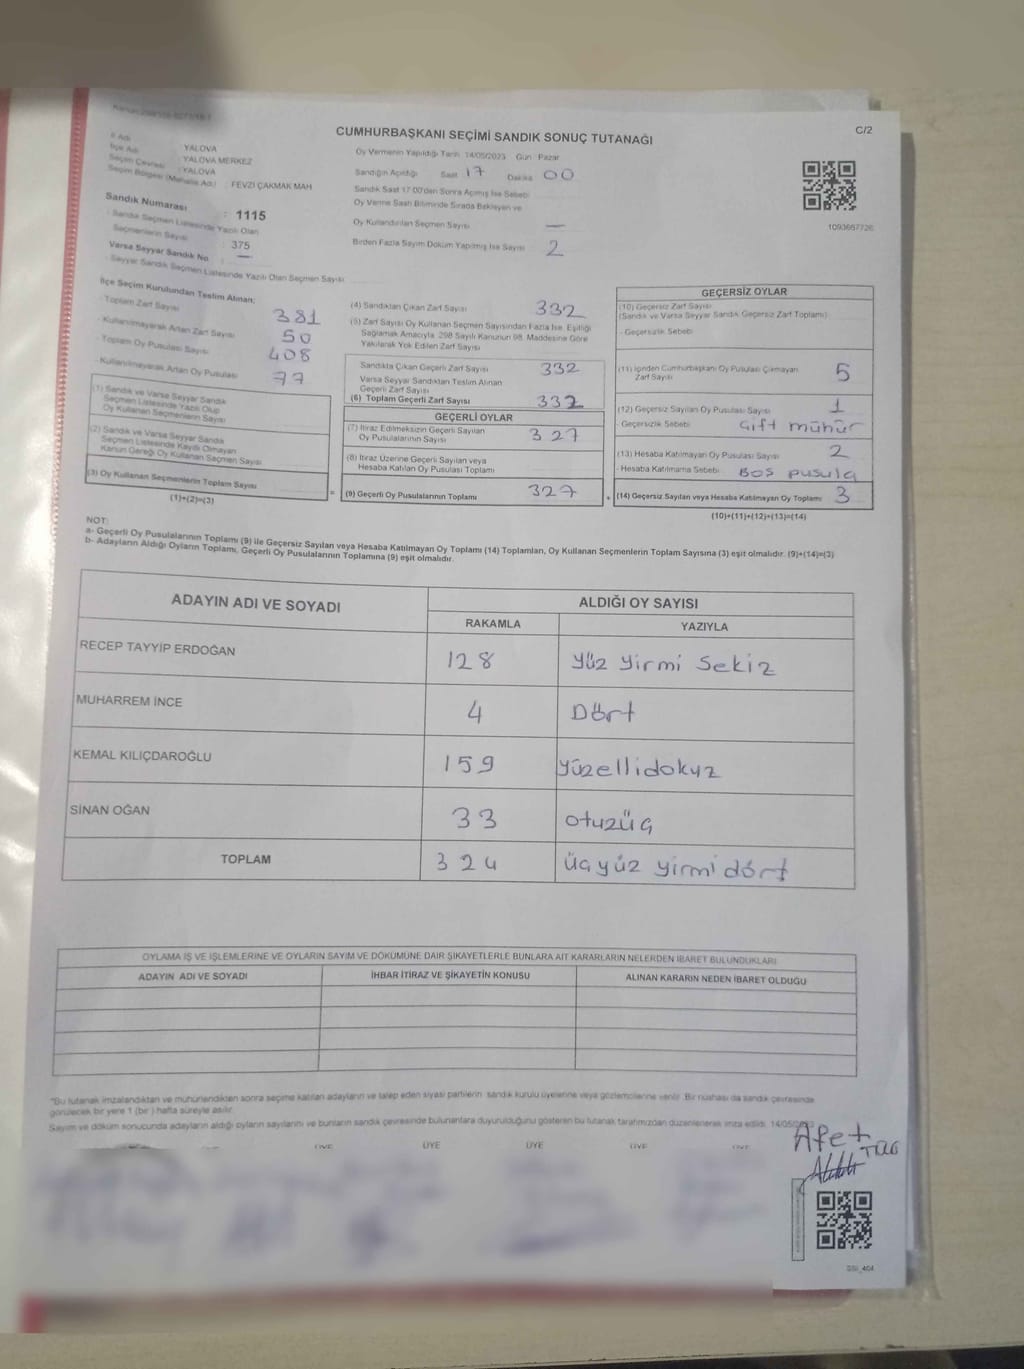 C/2
CUMHURBAŞKANI SEÇİMİ SANDIK SONUÇ TUTANAĞI
İl Adı YALOVA
İlçe Adı YALOVA MERKEZ
Seçim Çevresi : YALOVA
Seçim Bölgesi (Mahalle Adı) : FEVZİ ÇAKMAK MAH
Sandık Numarası : 1115
- Sandık Seçmen Listesinde Yazılı Olan
Seçmenlerin Sayısı : 375
Varsa Seyyar Sandık No : —
- Seyyar Sandık Seçmen Listesinde Yazılı Olan Seçmen Sayısı
Oy Vermenin Yapıldığı Tarih 14/05/2023 Gün Pazar
Sandığın Açıldığı Saat 17 Dakika 00
Sandık Saat 17:00'den Sonra Açılmış İse Sebebi
Oy Verme Saati Bitiminde Sırada Bekleyen ve
Oy Kullandırılan Seçmen Sayısı —
Birden Fazla Sayım Döküm Yapılmış İse Sayısı 2
1093667726
İlçe Seçim Kurulundan Teslim Alınan;
- Toplam Zarf Sayısı 381
- Kullanılmayarak Artan Zarf Sayısı 50
- Toplam Oy Pusulası Sayısı 408
- Kullanılmayarak Artan Oy Pusulası 77
(1) Sandık ve Varsa Seyyar Sandık
Seçmen Listesinde Yazılı Olup
Oy Kullanan Seçmenlerin Sayısı
(2) Sandık ve Varsa Seyyar Sandık
Seçmen Listesinde Kayıtlı Olmayan
Kanun Gereği Oy Kullanan Seçmen Sayısı
(3) Oy Kullanan Seçmenlerin Toplam Sayısı
(1)+(2)=(3)
(4) Sandıktan Çıkan Zarf Sayısı 332
(5) Zarf Sayısı Oy Kullanan Seçmen Sayısından Fazla İse, Eşitliği
Sağlamak Amacıyla 298 Sayılı Kanunun 98. Maddesine Göre
Yakılarak Yok Edilen Zarf Sayısı
Sandıkta Çıkan Geçerli Zarf Sayısı 332
Varsa Seyyar Sandıktan Teslim Alınan
Geçerli Zarf Sayısı
(6) Toplam Geçerli Zarf Sayısı 332
GEÇERLİ OYLAR
(7) İtiraz Edilmeksizin Geçerli Sayılan
Oy Pusulalarının Sayısı 327
(8) İtiraz Üzerine Geçerli Sayılan veya
Hesaba Katılan Oy Pusulası Toplamı
= (9) Geçerli Oy Pusulalarının Toplamı 327
GEÇERSİZ OYLAR
(10) Geçersiz Zarf Sayısı
(Sandık ve Varsa Seyyar Sandık Geçersiz Zarf Toplamı)
- Geçersizlik Sebebi
(11) İçinden Cumhurbaşkanı Oy Pusulası Çıkmayan
Zarf Sayısı 5
(12) Geçersiz Sayılan Oy Pusulası Sayısı 1
- Geçersizlik Sebebi Çift mühür
(13) Hesaba Katılmayan Oy Pusulası Sayısı 2
- Hesaba Katılmama Sebebi BOŞ pusula
+ (14) Geçersiz Sayılan veya Hesaba Katılmayan Oy Toplamı 3
(10)+(11)+(12)+(13)=(14)
NOT:
a- Geçerli Oy Pusulalarının Toplamı (9) ile Geçersiz Sayılan veya Hesaba Katılmayan Oy Toplamı (14) Toplamları, Oy Kullanan Seçmenlerin Toplam Sayısına (3) eşit olmalıdır. (9)+(14)=(3)
b- Adayların Aldığı Oyların Toplamı, Geçerli Oy Pusulalarının Toplamına (9) eşit olmalıdır.
ADAYIN ADI VE SOYADI ALDIĞI OY SAYISI
RAKAMLA YAZIYLA
RECEP TAYYİP ERDOĞAN 128 Yüz Yirmi Sekiz
MUHARREM İNCE 4 Dört
KEMAL KILIÇDAROĞLU 159 Yüzellidokuz
SİNAN OĞAN 33 Otuzüç
TOPLAM 324 üçyüz yirmidört
OYLAMA İŞ VE İŞLEMLERİNE VE OYLARIN SAYIM VE DÖKÜMÜNE DAİR ŞİKAYETLERLE BUNLARA AİT KARARLARIN NELERDEN İBARET BULUNDUKLARI
ADAYIN ADI VE SOYADI İHBAR İTİRAZ VE ŞİKAYETİN KONUSU ALINAN KARARIN NEDEN İBARET OLDUĞU
"Bu tutanak imzalandıktan ve mühürlendikten sonra seçime katılan adayların ve talep eden siyasi partilerin sandık kurulu üyelerine veya gözlemcilerine verilir. Bir nüshası da sandık çevresinde
görülecek bir yere 1 (bir) hafta süreyle asılır.
Sayım ve döküm sonucunda adayların aldığı oyların sayılarını ve bunların sandık çevresinde bulunanlara duyurulduğunu gösteren bu tutanak tarafımızdan düzenlenerek imza edildi. 14/05/2023
ÜYE ÜYE ÜYE ÜYE ÜYE
Afet
SSI_404